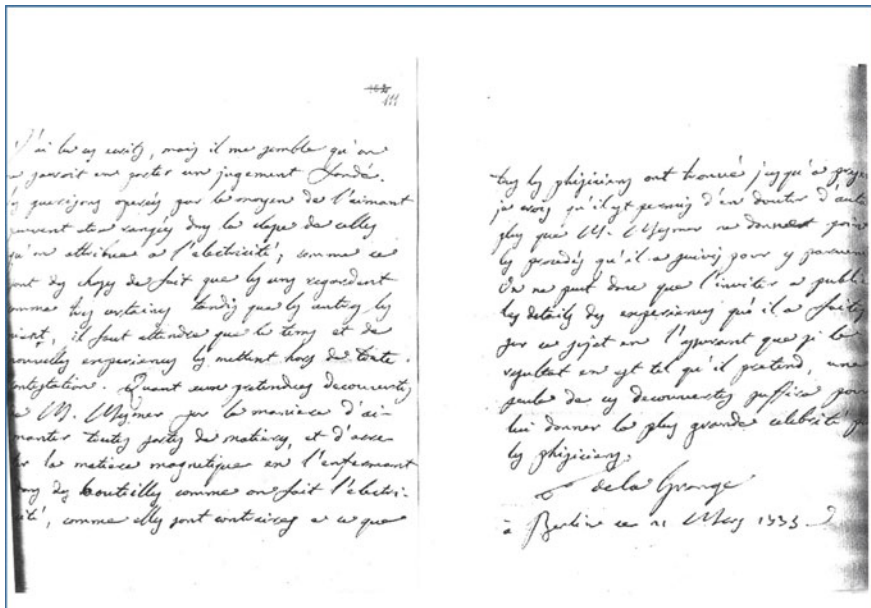 111
J'ai lu ces ecrits, mais il me semble qu'on
ne sauroit en porter un jugement fondé.
Les guerisons operées par le moyen de l'aimant
peuvent etre rangées dans la classe de celles
qu'on attribue a l'electricité; comme ce
sont des choses de fait que les uns regardent
comme tres certaines tandis que les autres les
nient, il faut attendre que le tems et de
nouvelles experiences les mettent hors de toute
contestation. Quant aux pretendues decouvertes
de M. Mesmer sur la maniere d'ai-
manter toutes sortes de matieres, et d'
la matiere magnetique en l'enfermant
dans des bouteilles comme on fait l'electri-
cité, comme elles sont contraires a ce que
tous les phisiciens ont trouvé jusqu'a
je crois qu'il est permis d'en douter d'auta
plus que M. Mesmer ne donnant poin
les procedés qu'il a suivis pour y parvenir
On ne peut donc que l'inviter a publie
les details des experiences qu'il a faites
sur ce sujet en l'assurant que si le
resultat en est tel qu'il pretend, une
seule de ces decouvertes suffira pour
lui donner la plus grande celebrité
les phisiciens.
de la Grange
à Berlin ce 21 Mars 1775